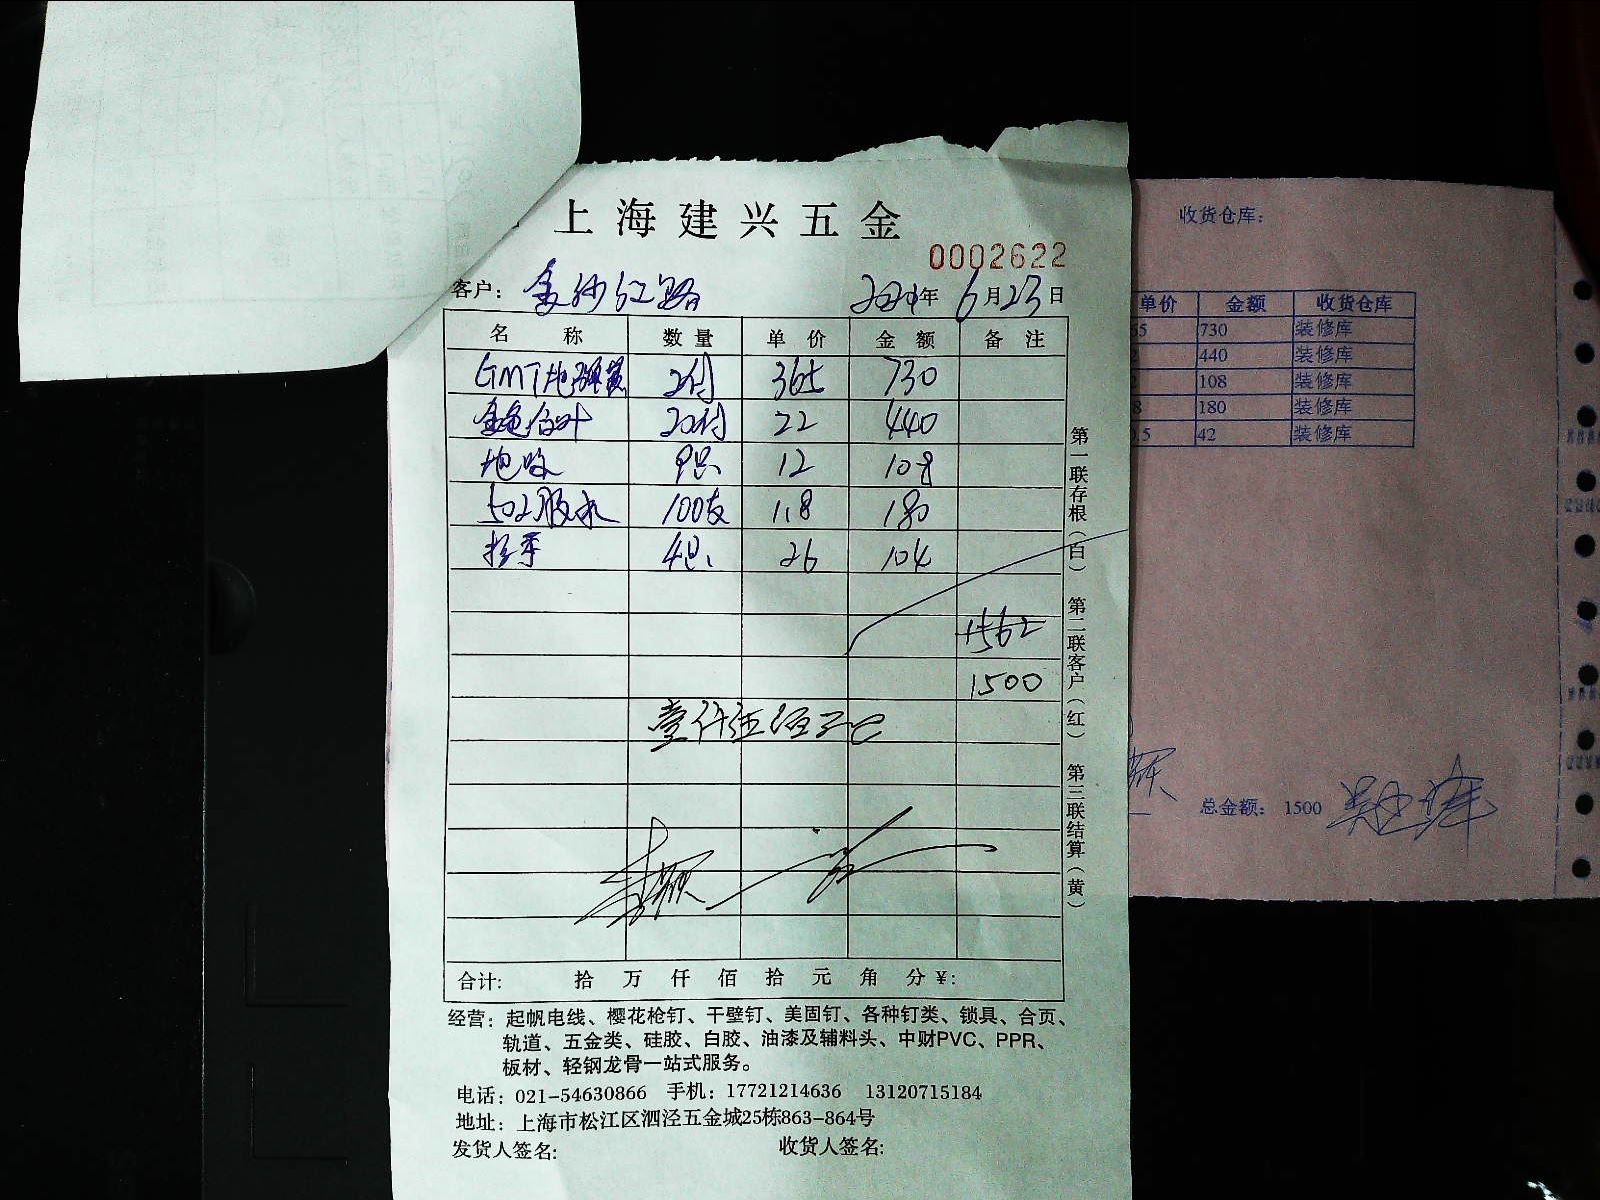 上海建兴五金
0002622
客户: 金沙江路 年6月23日
名 称 数量 单价 金额 备注
GMT地弹簧 2付 365 730
金色合叶 20付 22 440
地吸 9只 12 108
502胶水 100支 1.8 180
拉手 4只 26 104
1562
1500
壹仟伍佰元
合计: 拾 万 仟 佰 拾 元 角 分 ¥:
第一联存根(白) 第二联客户(红) 第三联结算(黄)
经营: 起帆电线、樱花枪钉、干壁钉、美固钉、各种钉类、锁具、合页、
轨道、五金类、硅胶、白胶、油漆及辅料头、中财PVC、PPR、
板材、轻钢龙骨一站式服务。
电话: 021-54630866 手机: 17721214636 13120715184
地址: 上海市松江区泗泾五金城25栋863-864号
发货人签名: 收货人签名:
收货仓库:
单价 金额 收货仓库
730 装修库
440 装修库
108 装修库
180 装修库
42 装修库
总金额: 1500